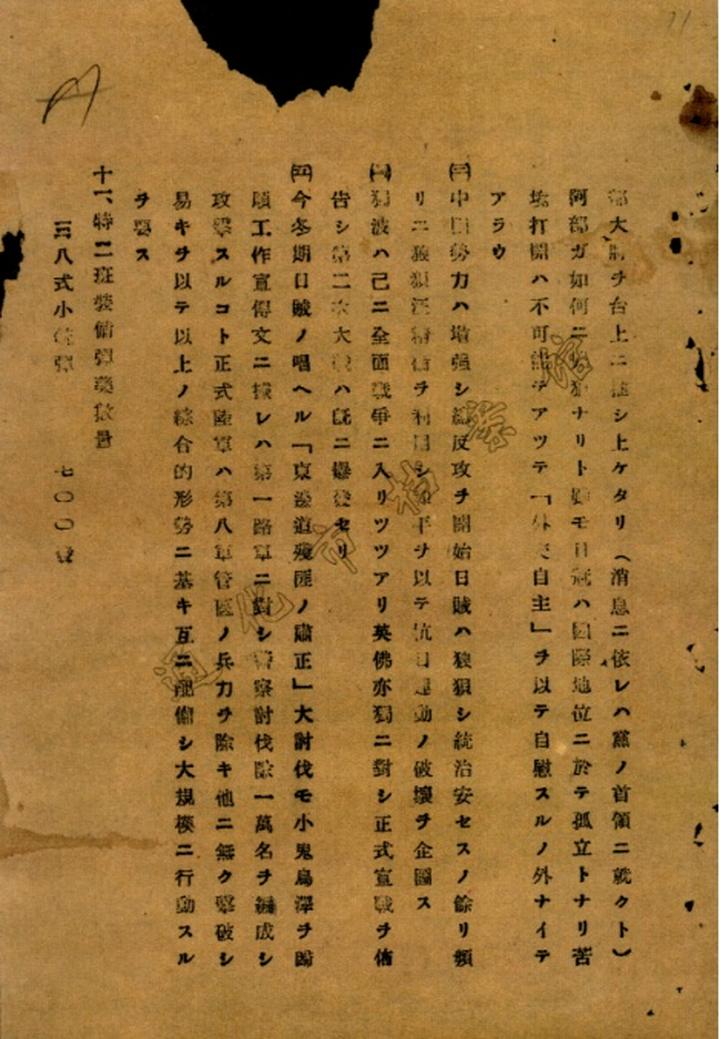 部大將ヲ台上ニ推シ上ケタリ(消息ニ依レハ黨ノ首領ニ就クト)
阿部ガ如何ニ ナリト モ日 ハ國際地位ニ於テ孤立トナリ苦
境打開ハ不可能デアツテ「外交自主」ヲ以テ自慰スルノ外ナイデ
アラウ
㈢中國勢力ハ增强シ總反攻ヲ開始日賊ハ狼狽シ統治安セスノ餘リ頻
リニ 汪精衛ヲ利用シ 平ヲ以テ抗日運動ノ破壞ヲ企圖ス
㈣獨波ハ己ニ全面戰爭ニ入リツツアリ英佛亦獨ニ對シ正式宣戰ヲ佈
告シ第二次大戰ハ既ニ爆發セリ
㈤今冬期日賊ノ唱ヘル「東邊道殘匪ノ肅正」大討伐モ小鬼烏澤ヲ
工作宣得文ニ據レハ第一路軍ニ對シ警察討伐隊一萬名ヲ編成シ
攻擊スルコト正式陸軍ハ第八軍管區ノ兵力ヲ除キ他ニ無ク擊破シ
易キヲ以テ以上ノ綜合的形勢ニ基キ互ニ配備シ大規模ニ行動スル
ヲ要ス
十一、特二班裝備彈藥數量
三八式小 彈 七〇〇發
通化市档案